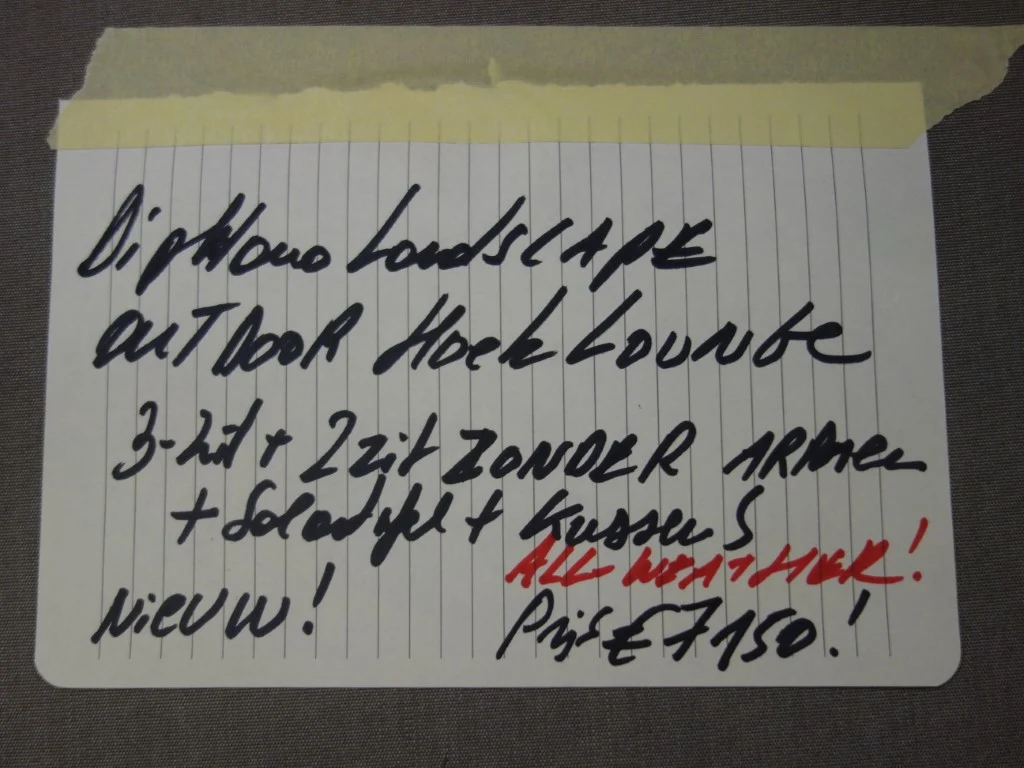 Diphano LandSCAPE
OUTDOOR Hoek LOUNGE
3-zit + 2zit ZONDER ARMEN
+ Salontafel + KUSSENS
ALL WEATHER!
NIEUW!
Prijs € 7150!